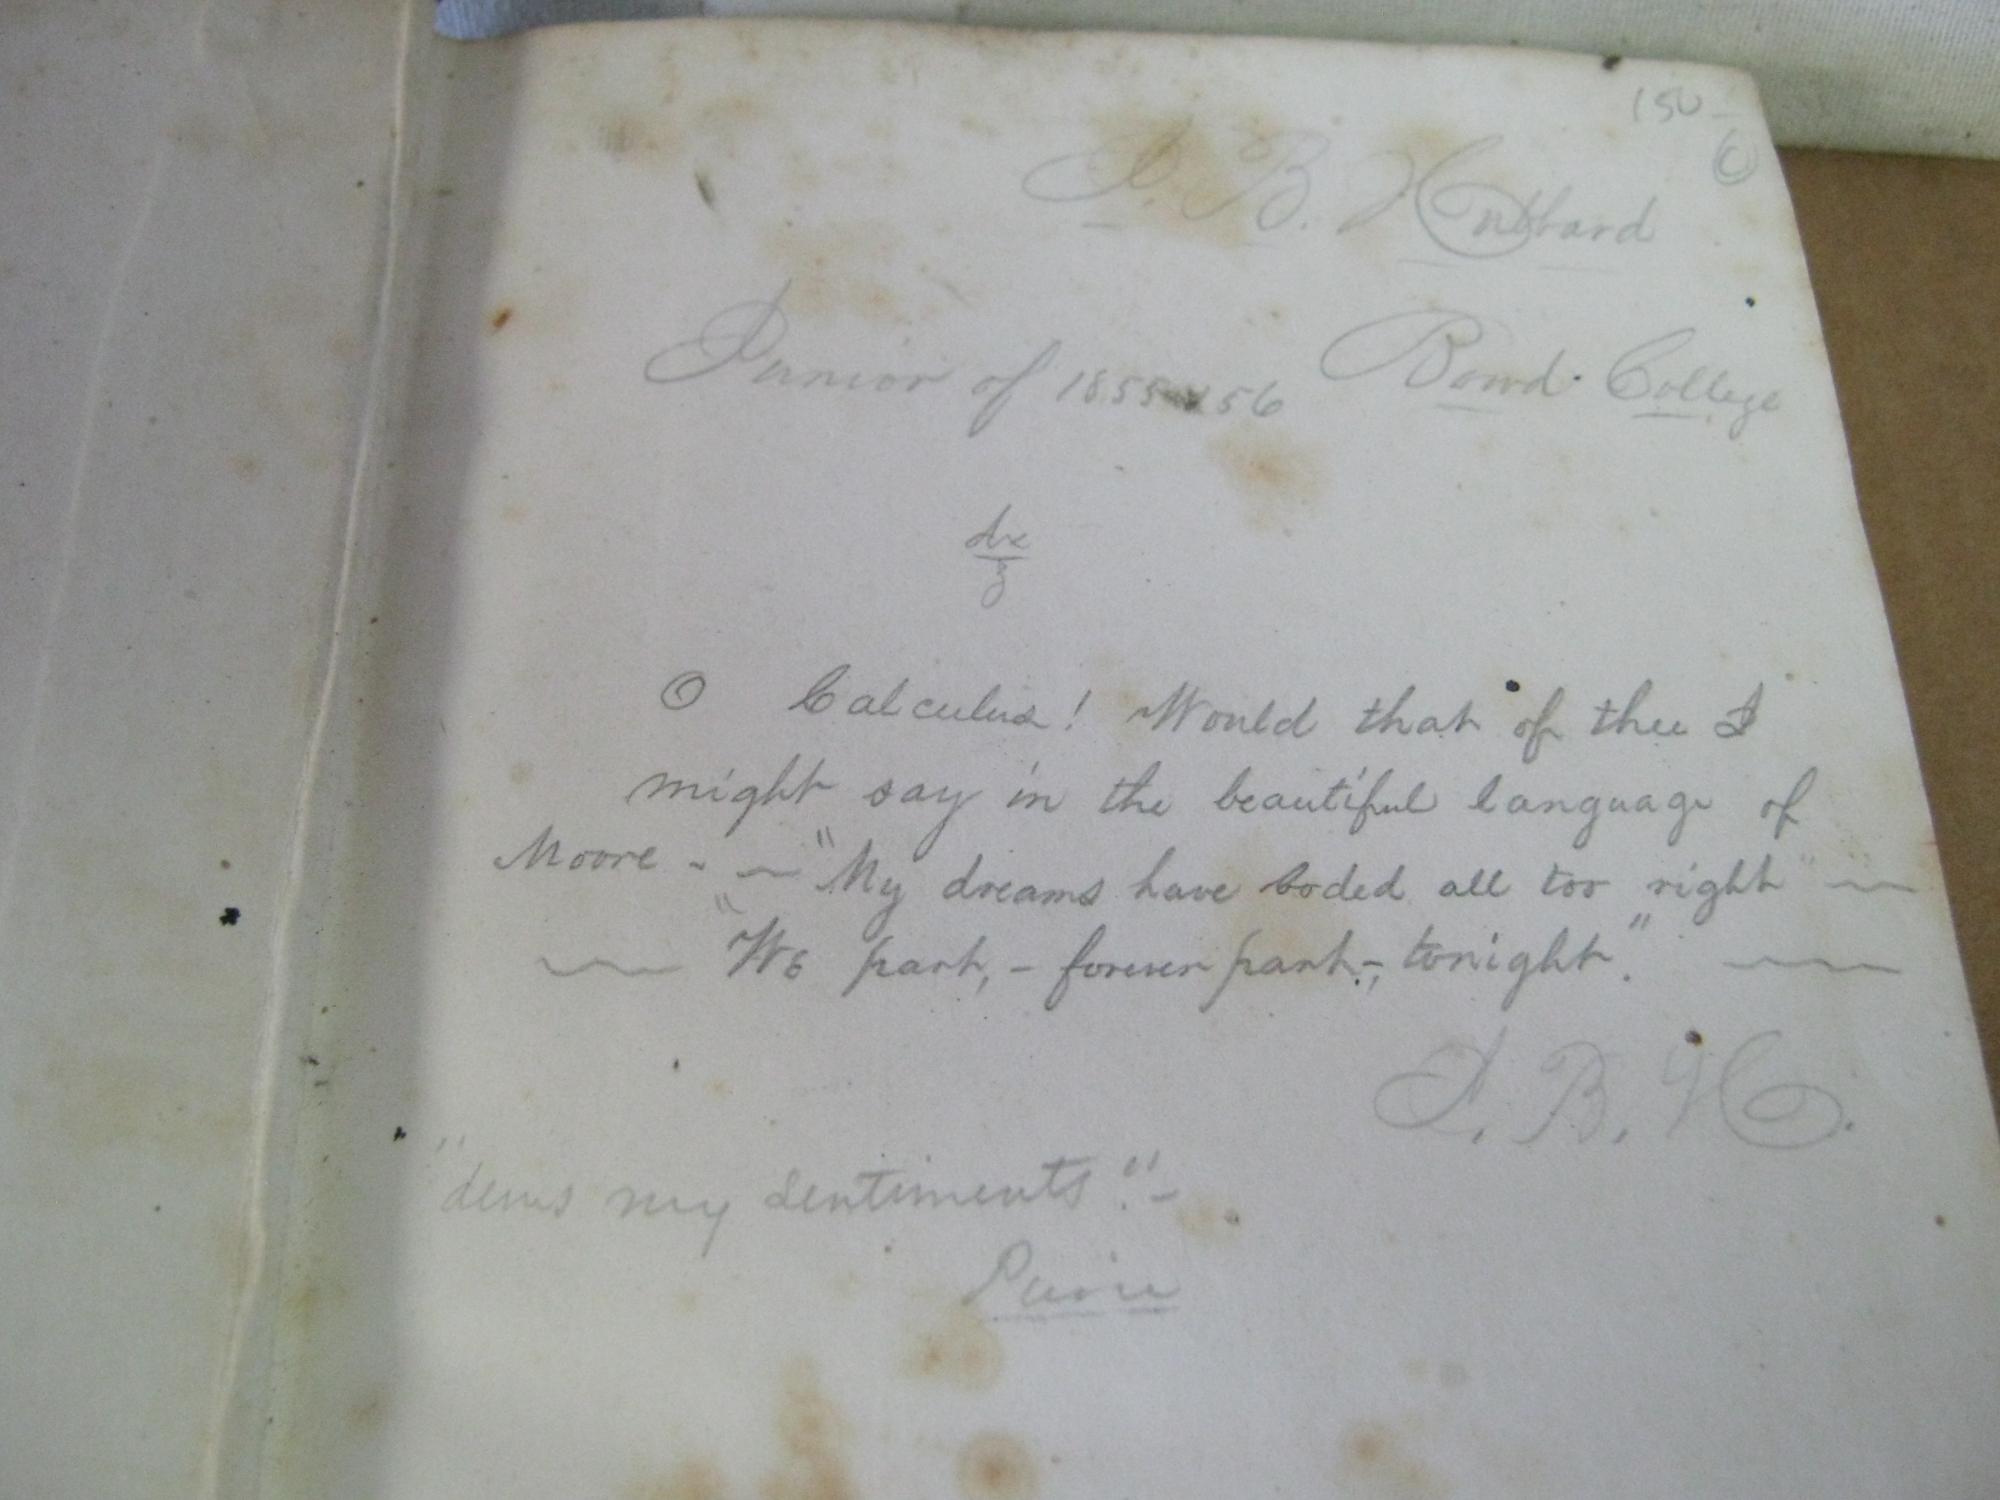 150 –
C
J. B. Hubbard
Junior of 1855 & 56 Bowd. College
dx
3
O Calculus! Would that of thee I
might say in the beautiful language of
Moore - — "My dreams have boded all too right" —
— "We part, – forever part –, tonight." —
J. B. H.
"dems my sentiments". –